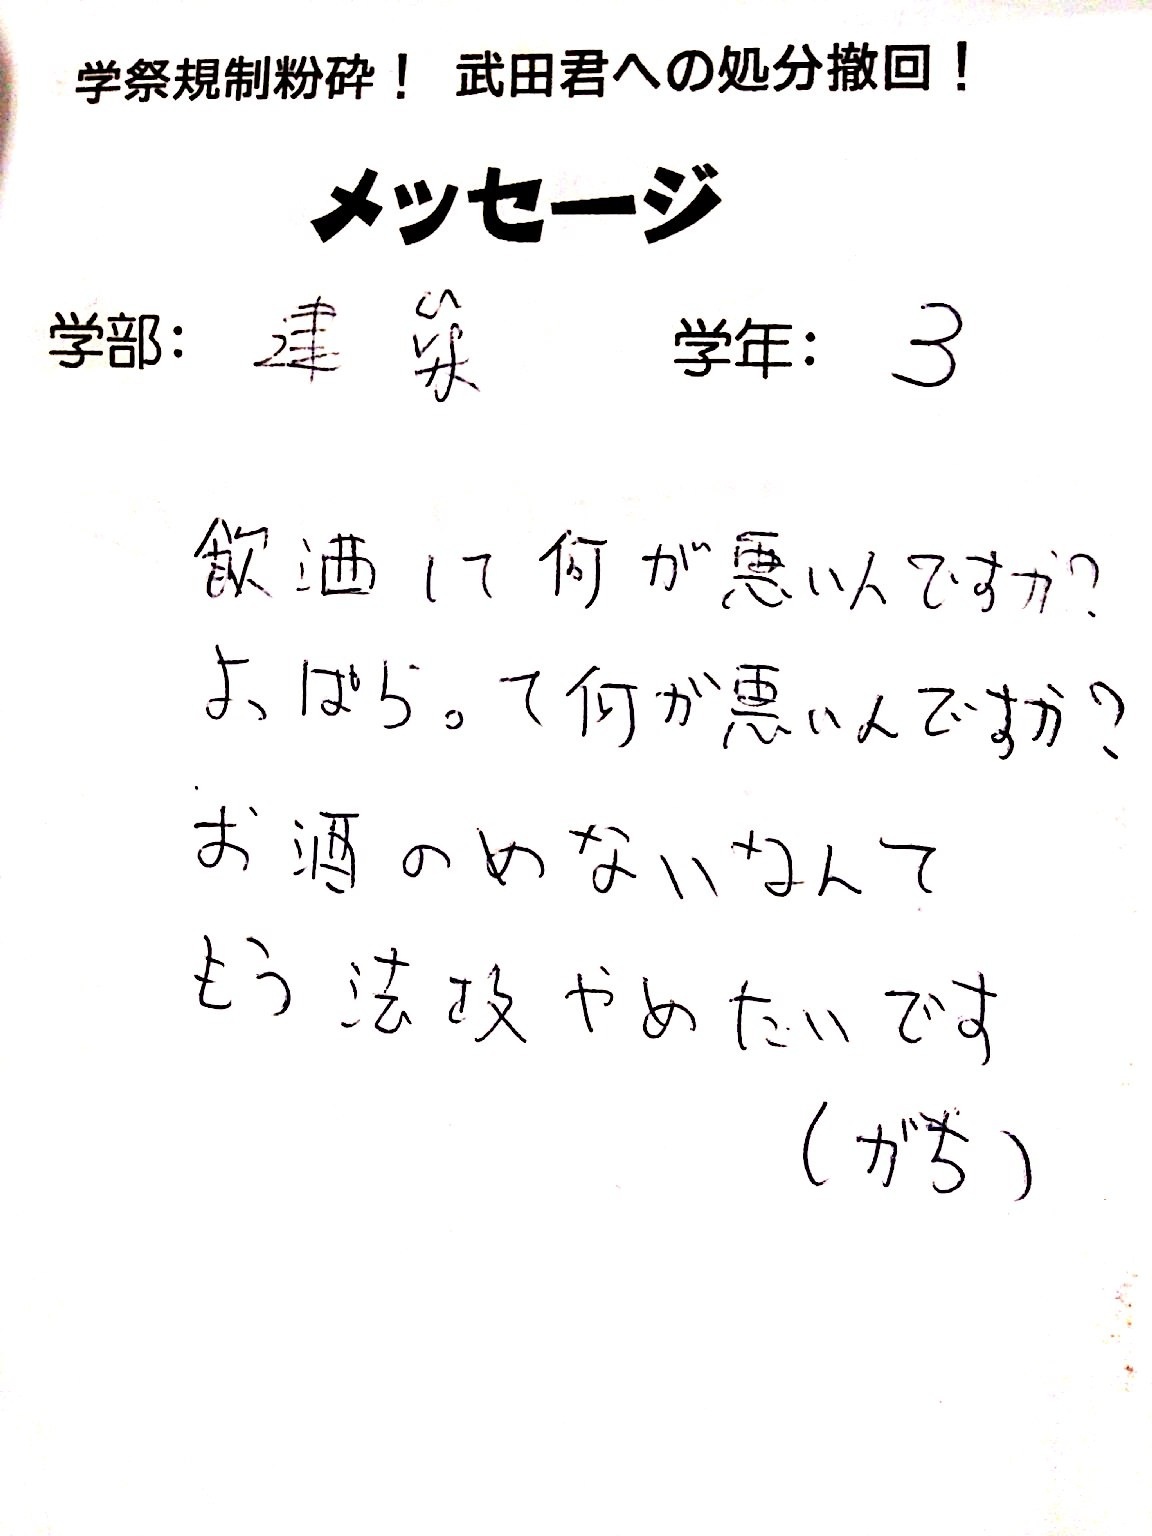 学祭規制粉砕！ 武田君への処分撤回！
メッセージ
学部： 建築 学年： 3
飲酒して何が悪いんですか？
よっぱらって何が悪いんですか？
お酒のめないなんて
もう法政やめたいです
（がち）